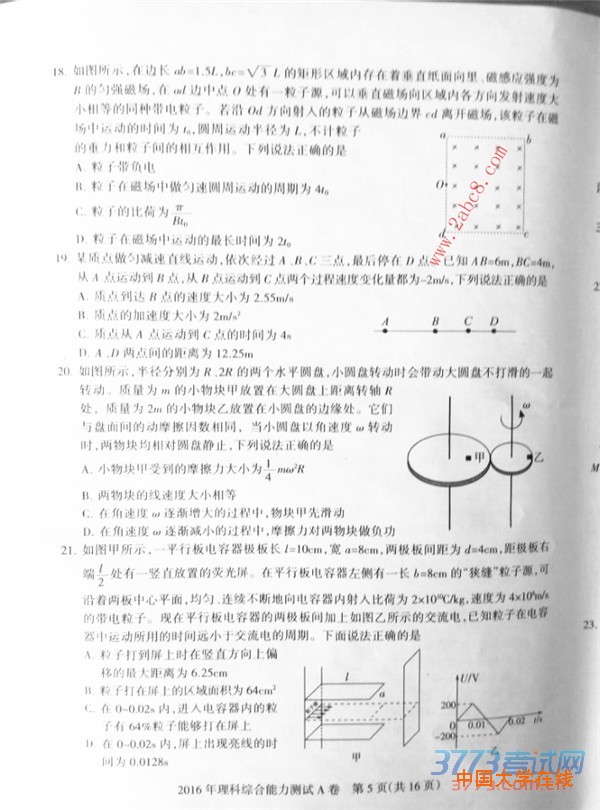 18. 如图所示,在边长 ab=1.5L,bc=√3 L 的矩形区域内存在着垂直纸面向里、磁感应强度为
B 的匀强磁场,在 ad 边中点 O 处有一粒子源,可以垂直磁场向区域内各方向发射速度大
小相等的同种带电粒子。若沿 Od 方向射入的粒子从磁场边界 cd 离开磁场,该粒子在磁
场中运动的时间为 t₀,圆周运动半径为 L,不计粒子
的重力和粒子间的相互作用。下列说法正确的是
A. 粒子带负电
B. 粒子在磁场中做匀速圆周运动的周期为 4t₀
C. 粒子的比荷为 π/Bt₀
D. 粒子在磁场中运动的最长时间为 2t₀
a
b
O
d
c
www.2abc8.com
19. 某质点做匀减速直线运动,依次经过 A、B、C 三点,最后停在 D 点。已知 AB=6m,BC=4m,
从 A 点运动到 B 点,从 B 点运动到 C 点两个过程速度变化量都为-2m/s,下列说法正确的是
A. 质点到达 B 点的速度大小为 2.55m/s
B. 质点的加速度大小为 2m/s²
C. 质点从 A 点运动到 C 点的时间为 4s
D. A、D 两点间的距离为 12.25m
A B C D
20. 如图所示,半径分别为 R、2R 的两个水平圆盘,小圆盘转动时会带动大圆盘不打滑的一起
转动。质量为 m 的小物块甲放置在大圆盘上距离转轴 R
处,质量为 2m 的小物块乙放置在小圆盘的边缘处。它们
与盘面间的动摩擦因数相同,当小圆盘以角速度 ω 转动
时,两物块均相对圆盘静止,下列说法正确的是
A. 小物块甲受到的摩擦力大小为 1/4 mω²R
B. 两物块的线速度大小相等
C. 在角速度 ω 逐渐增大的过程中,物块甲先滑动
D. 在角速度 ω 逐渐减小的过程中,摩擦力对两物块做负功
ω
甲
乙
21. 如图甲所示,一平行板电容器极板长 l=10cm,宽 a=8cm,两极板间距为 d=4cm,距极板右
端 l/2 处有一竖直放置的荧光屏。在平行板电容器左侧有一长 b=8cm 的“狭缝”粒子源,可
沿着两板中心平面,均匀、连续不断地向电容器内射入比荷为 2×10¹⁰C/kg,速度为 4×10⁶m/s
的带电粒子。现在平行板电容器的两极板间加上如图乙所示的交流电,已知粒子在电容
器中运动所用的时间远小于交流电的周期。下面说法正确的是
A. 粒子打到屏上时在竖直方向上偏
移的最大距离为 6.25cm
B. 粒子打在屏上的区域面积为 64cm²
C. 在 0~0.02s 内,进入电容器内的粒
子有 64%粒子能够打在屏上
D. 在 0~0.02s 内,屏上出现亮线的时
间为 0.0128s
l
a
甲
U/V
200
0
-200
0.01
0.02
t/s
乙
2016 年理科综合能力测试 A 卷 第 5 页(共 16 页)
23.
3773考试网
中国大学在线